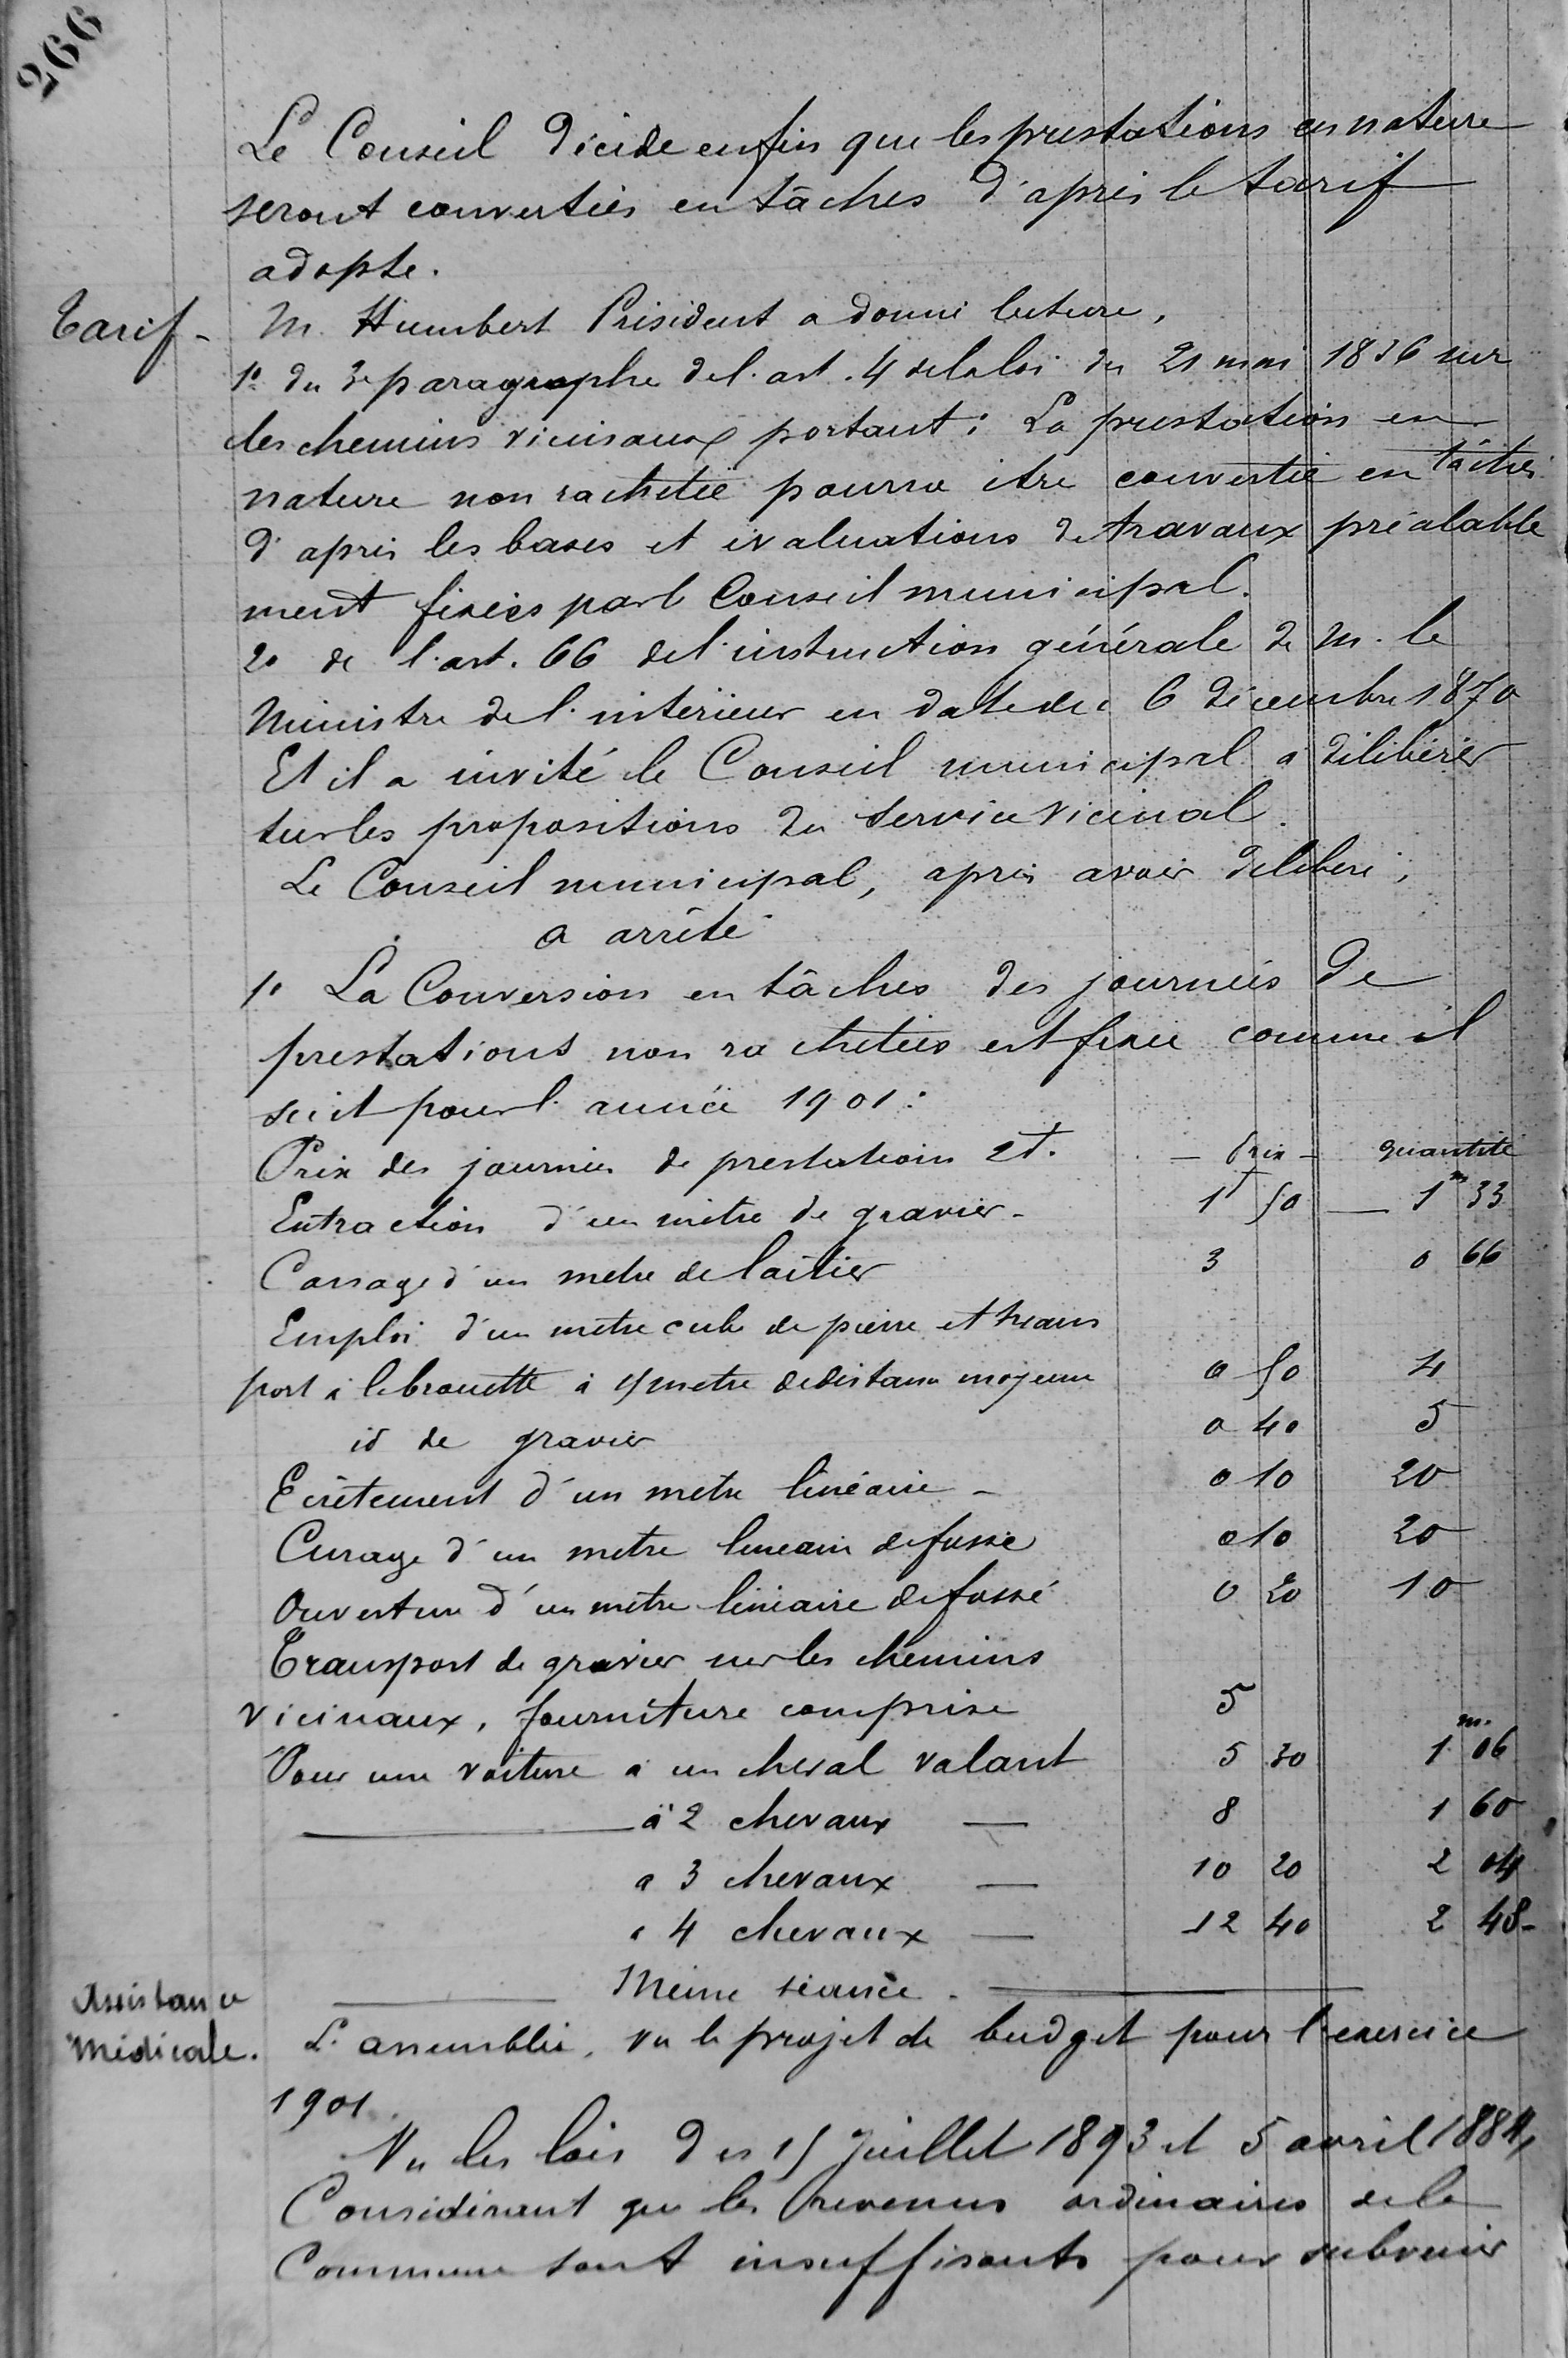 266
Le Conseil décide enfin que les prestations en nature
seront converties en tâches d'après le tarif
adopte.
Tarif - M. Humbert Président a donné lecture,
1º du 3e paragraphe de l'art. 4 de la loi du 21 mai 1836 sur
les chemins vicinaux portant: La prestation en
nature non rachetée pourra être convertie en tâches
d'après les bases et évaluations de travaux préalable
ment fixées par le Conseil municipal.
2º de l'art. 66 de l'instruction générale de M. le
Ministre de l'intérieur en date du 6 décembre 1870
Et il a invité le Conseil municipal a délibérer
sur les propositions du service vicinal.
Le Conseil municipal, après avoir déliberé,
a arrêté
1º La Conversion en tâches des journées de
prestations non rachetées est fixée comme il
suit pour l'année 1901:
Prix des journées de prestations 2f. — Prix — quantité
Extraction d'un mètre de gravier - 1f 50 — 1m 33
Cassage d'un metre de laitier 3 0 66
Emploi d'un mètre cube de pierre et trans
port à la brouette à metre de distance moyenne 0 50 4
id de gravier 0 40 5
Ecrêtement d'un metre linéaire - 0 10 20
Curage d'un metre lineaire de fossé 0 10 20
Ouverture d'un mètre linéaire de fossé 0 20 10
Transport de gravier sur les chemins
vicinaux, fourniture comprise 5
Pour une voiture a un cheval valant 5 30 1m. 06
— à 2 chevaux — 8 1 60
a 3 chevaux — 10 20 2 04
a 4 chevaux — 12 40 2 48 -
— Même séance. —
Assistance
Médicale.
L'assemblée, vu le projet de budget pour l'exercice
1901.
Vu les lois des 15 Juillet 1893 et 5 avril 1884,
Considérant que les revenus ordinaires de la
Commune sont insuffisants pour subvenir